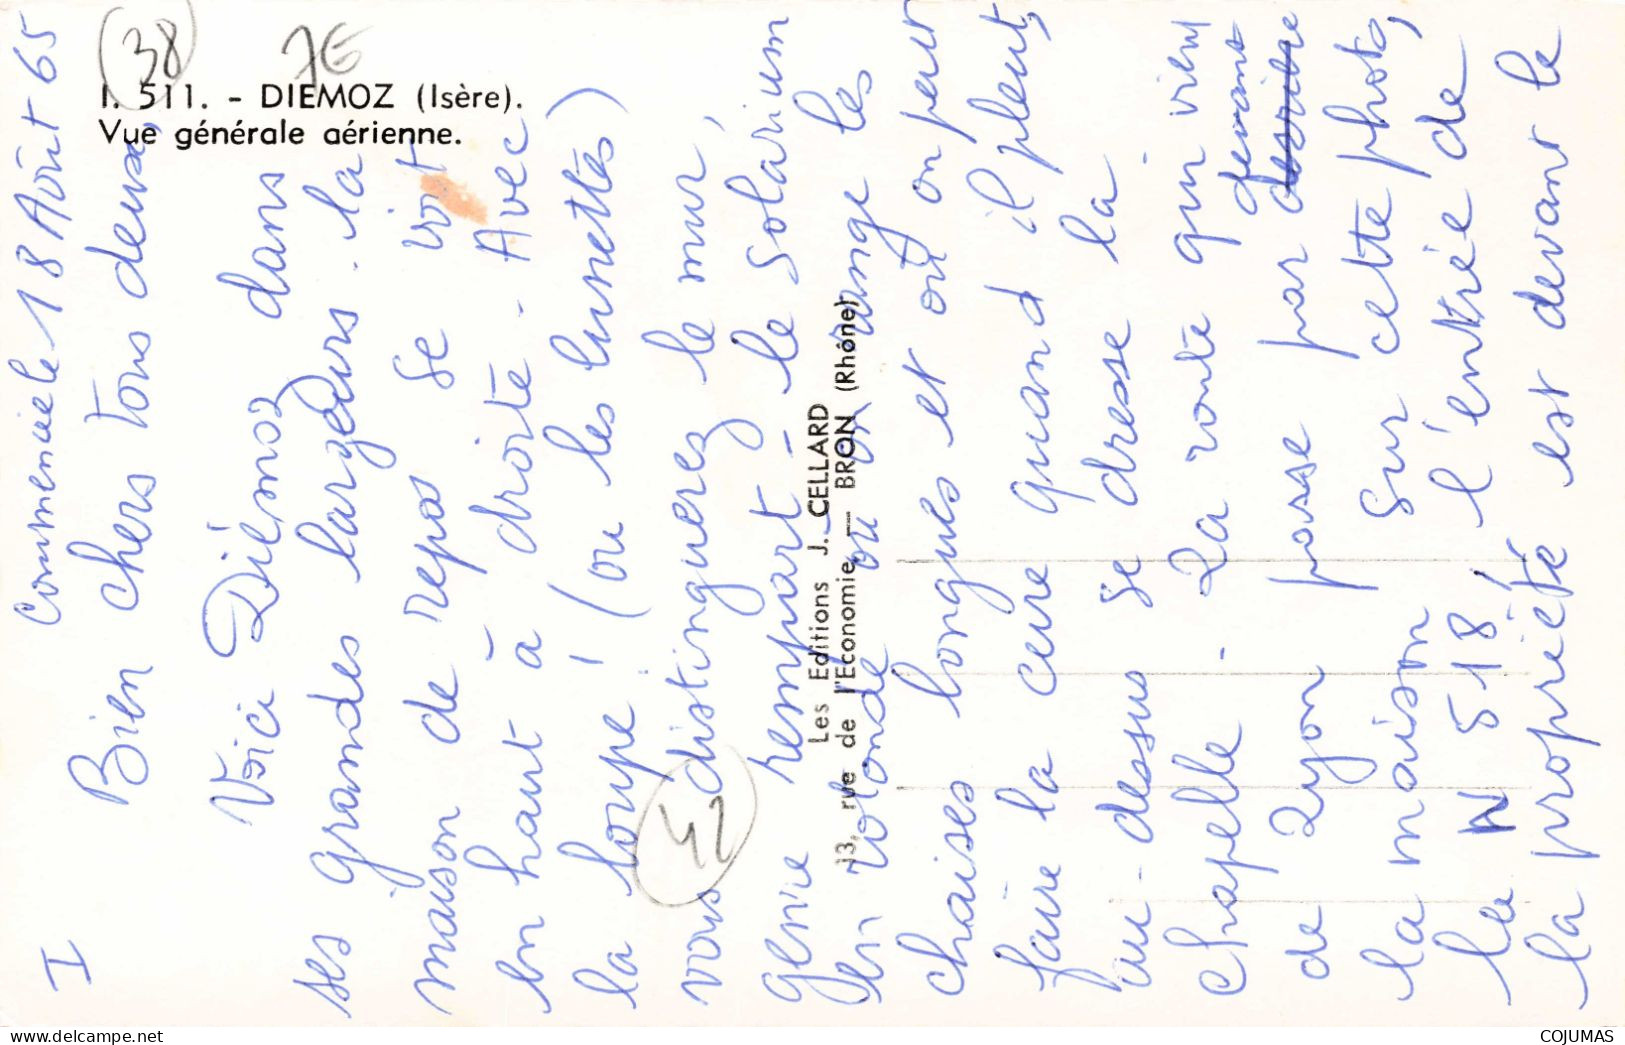 (38)
7E
I. 511. - DIEMOZ (Isère).
Vue générale aérienne.
Les Editions J. CELLARD
13, rue de l'Economie - BRON (Rhône)
42
I Commencé le 18 Août 65
Bien chers tous deux,
Voici Diémoz dans
ses grandes largeurs. la
maison de repos se voit
en haut à droite - Avec
la loupe! (ou les lunettes)
vous distinguerez le mur,
genre rempart - le solarium
en rotonde où on range les
chaises longues et où on peut
faire la cure quand il pleut,
au-dessus se dresse la
chapelle - La route qui vient
de Lyon passe par devant
la maison sur cette photo,
la N 518, l'entrée de
la propriété est devant le
COJUMAS